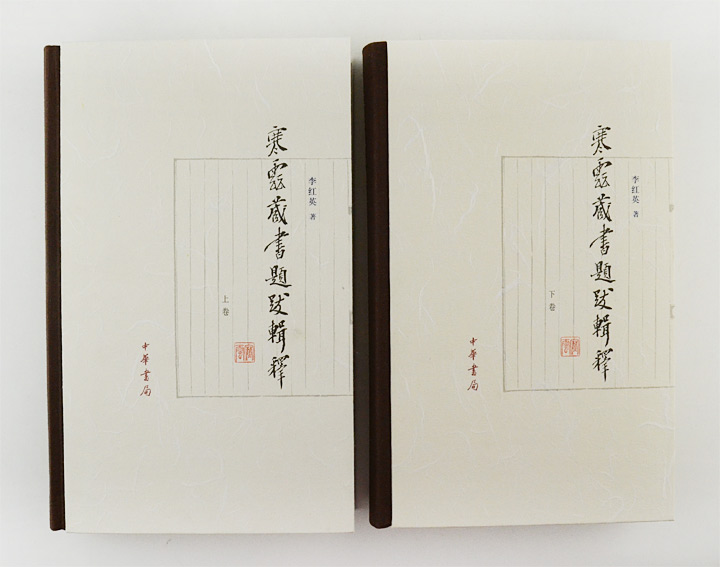 寒雲藏書題跋輯釋
李红英 著
上卷
中華書局
寒雲藏書題跋輯釋
李红英 著
下卷
中華書局